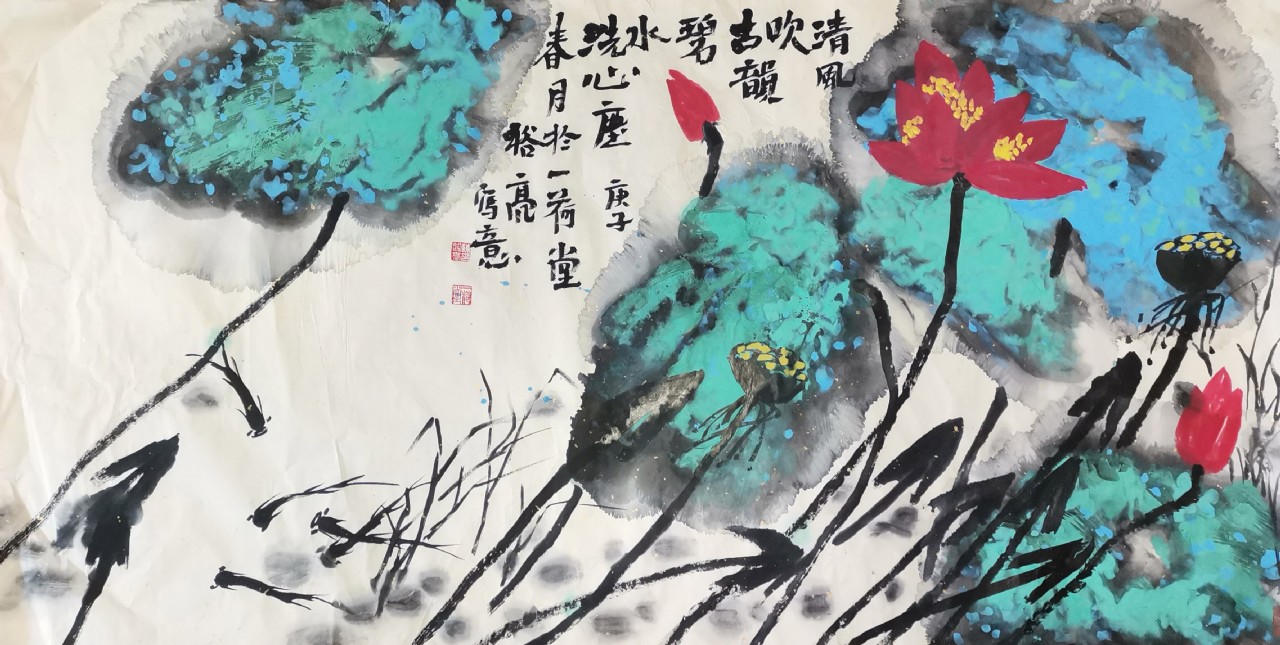 清風
吹
古韻
碧
水
洗心塵 庚子
春月於一荷堂
亮
寫意